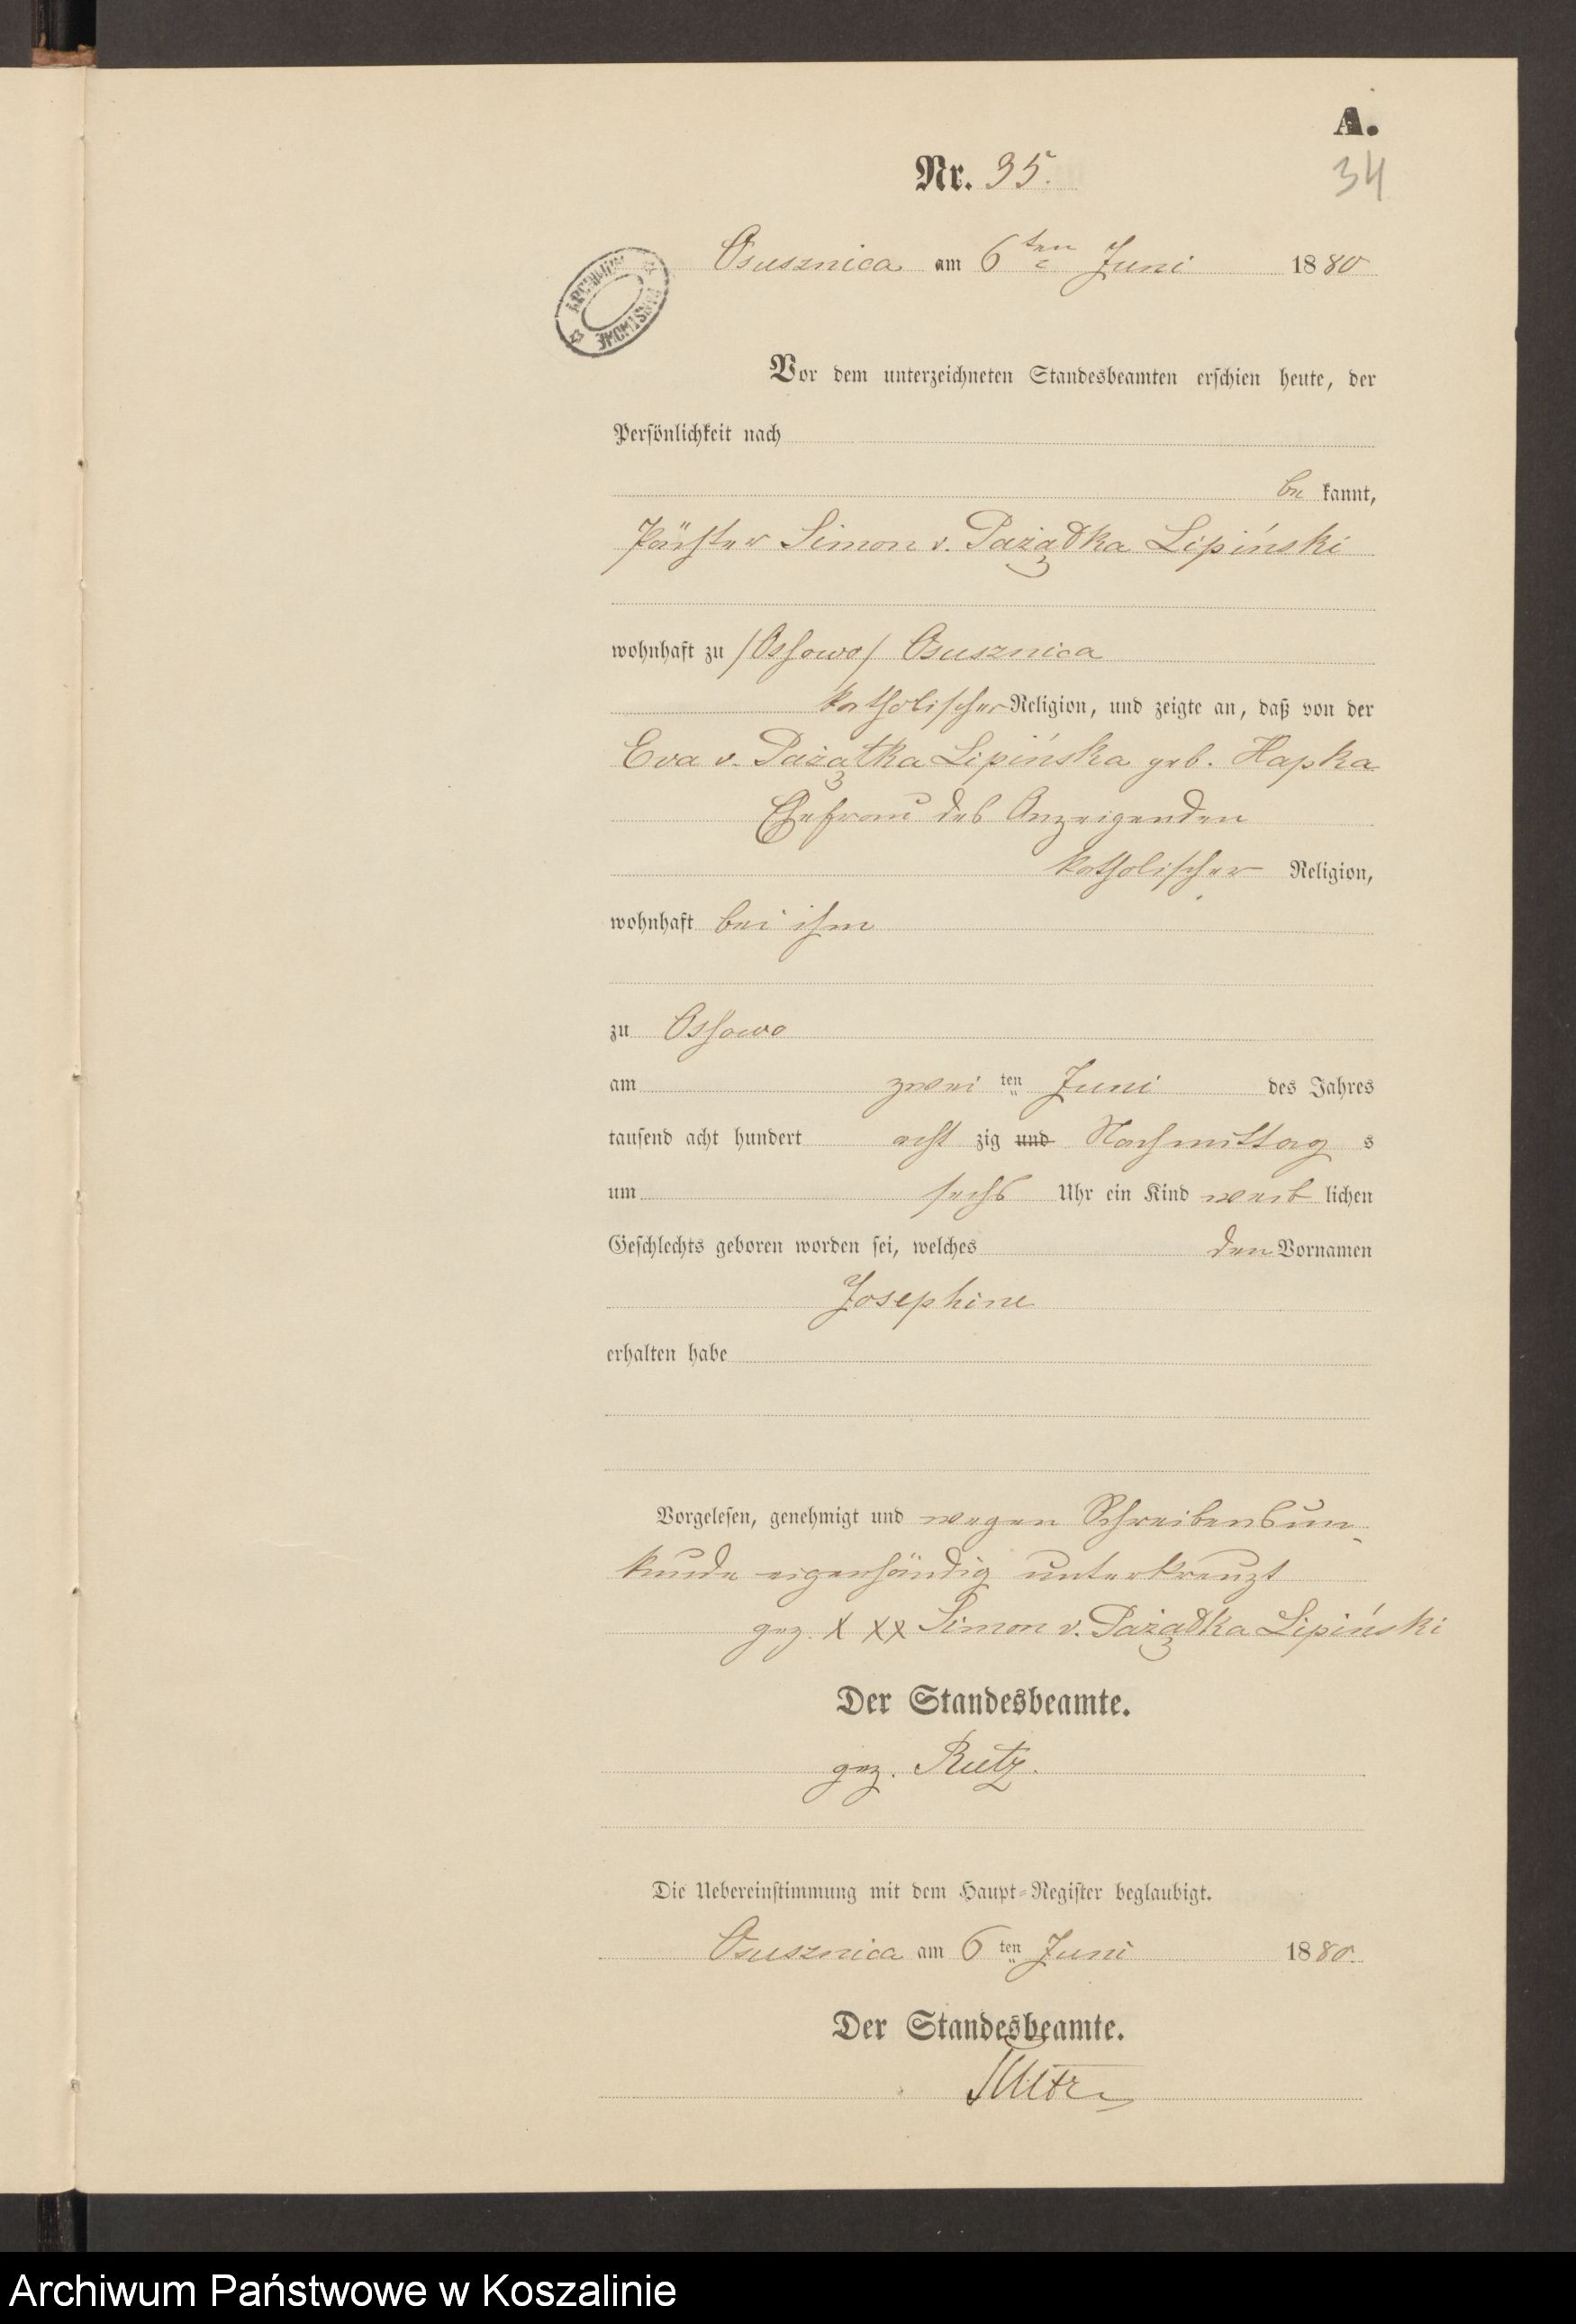 A.
Nr. 35.
34
ARCHIWUM PAŃSTWOWE
Osusznica am 6ten Juni 1880
Vor dem unterzeichneten Standesbeamten erschien heute, der
Persönlichkeit nach
be kannt,
Simon v. Pażądka Lipiński
wohnhaft zu /Ossowo/ Osusznica
katholischer Religion, und zeigte an, daß von der
Eva v. Pażątka Lipińska geb. Hapka
Ehefrau des Anzeigenden
katholischer Religion,
wohnhaft bei ihm
zu Ossowo
am zwei ten Juni des Jahres
tausend acht hundert acht zig und Nachmittag s
um sechs Uhr ein Kind weib lichen
Geschlechts geboren worden sei, welches den Vornamen
Josephine
erhalten habe
Vorgelesen, genehmigt und wegen Schreibensun-
kunde eigenhändig unterkreuzt
gez. X XX Simon v. Pażądka Lipiński
Der Standesbeamte.
gez. Rutz.
Die Uebereinstimmung mit dem Haupt-Register beglaubigt.
Osusznica am 6 ten Juni 1880.
Der Standesbeamte.
Rutz
Archiwum Państwowe w Koszalinie